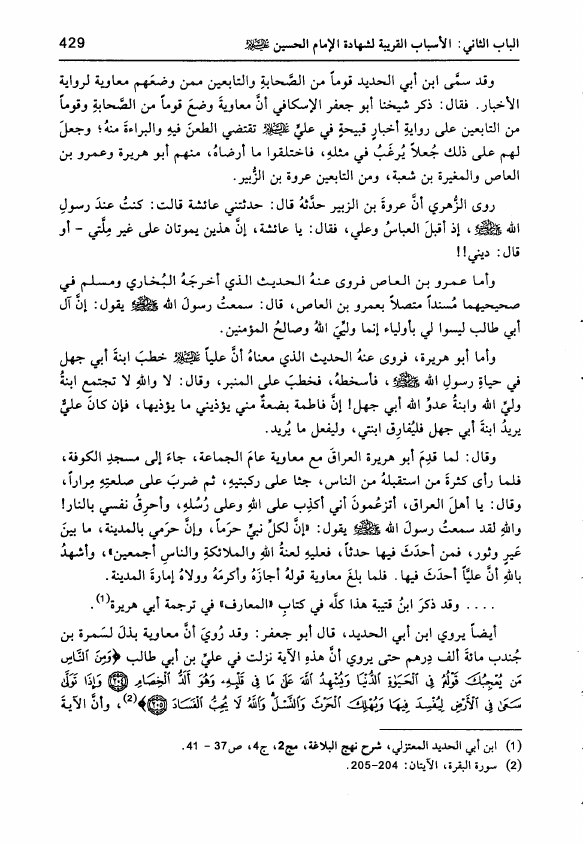 الباب الثاني: الأسباب القريبة لشهادة الإمام الحسين ﷺ 429
وقد سمَّى ابن أبي الحديد قوماً من الصَّحابةِ والتابعين ممن وضعَهم معاوية لرواية
الأخبار. فقال: ذكر شيخنا أبو جعفر الإسكافي أنَّ معاويةَ وضعَ قوماً من الصَّحابةِ وقوماً
من التابعين على روايةِ أخبارٍ قبيحةٍ في عليٍّ ﷺ تقتضي الطعنَ فيهِ والبراءةَ منهُ؛ وجعلَ
لهم على ذلك جُعلاً يُرغَبُ في مثلِهِ، فاختلقوا ما أرضاهُ، منهم أبو هريرة وعمرو بن
العاص والمغيرة بن شعبة، ومن التابعين عروة بن الزُّبير.
روى الزُّهري أنَّ عروةَ بن الزبير حدَّثهُ قال: حدثتني عائشة قالت: كنتُ عندَ رسولِ
الله ﷺ، إذ أقبلَ العباسُ وعلي، فقال: يا عائشة، إنَّ هذين يموتان على غير مِلَّتي - أو
قال: ديني!!
وأما عمرو بن العاص فروى عنهُ الحديث الذي أخرجَهُ البُخاري ومسلم في
صحيحيهما مُسنداً متصلاً بعمرو بن العاص، قال: سمعتُ رسولَ الله ﷺ يقول: إنَّ آل
أبي طالب ليسوا لي بأولياء إنما وليِّيَ اللهُ وصالحُ المؤمنين.
وأما أبو هريرة، فروى عنهُ الحديث الذي معناهُ أنَّ علياً ﷺ خطبَ ابنةَ أبي جهل
في حياةِ رسولِ الله ﷺ، فأسخطَهُ، فخطبَ على المنبر، وقال: لا واللهِ لا تجتمع ابنةُ
وليِّ الله وابنةُ عدوِّ الله أبي جهل! إنَّ فاطمة بضعةٌ مني يؤذيني ما يؤذيها، فإن كانَ عليٌّ
يريدُ ابنةَ أبي جهل فليُفارِق ابنتي، وليفعل ما يُريد.
وقال: لما قدِمَ أبو هريرة العراقَ مع معاوية عامَ الجماعة، جاءَ إلى مسجدِ الكوفة،
فلما رأى كثرةَ من استقبلَهُ من الناس، جثا على ركبتيهِ، ثم ضربَ على صلعتِهِ مِراراً،
وقال: يا أهلَ العراق، أتزعُمونَ أني أكذِب على اللهِ وعلى رُسُلِهِ، وأحرِقُ نفسي بالنار!
واللهِ لقد سمعتُ رسولَ الله ﷺ يقول: «إنَّ لكلِّ نبيٍّ حرَماً، وإنَّ حرَمي بالمدينة، ما بينَ
عَيرٍ وثور، فمن أحدَثَ فيها حدثاً، فعليهِ لعنةُ اللهِ والملائكةِ والناسِ أجمعين»، وأشهدُ
باللهِ أنَّ عليَّاً أحدَثَ فيها. فلما بلغَ معاوية قولُهُ أجازَهُ وأكرمَهُ وولاهُ إمارةَ المدينة.
.... وقد ذكرَ ابنُ قتيبة هذا كلَّه في كتابِ «المعارف» في ترجمة أبي هريرة(1).
أيضاً يروي ابن أبي الحديد، قال أبو جعفر: وقد رُويَ أنَّ معاوية بذلَ لسَمرة بن
جُندب مائةَ ألف دِرهم حتى يروي أنَّ هذهِ الآية نزلت في عليِّ بن أبي طالب ﴿وَمِنَ النَّاسِ
مَن يُعْجِبُكَ قَوْلُهُ فِي الْحَيَوٰةِ الدُّنْيَا وَيُشْهِدُ اللَّهَ عَلَىٰ مَا فِي قَلْبِهِ وَهُوَ أَلَدُّ الْخِصَامِ ۝٢٠٤ وَإِذَا تَوَلَّىٰ
سَعَىٰ فِي الْأَرْضِ لِيُفْسِدَ فِيهَا وَيُهْلِكَ الْحَرْثَ وَالنَّسْلَ وَاللَّهُ لَا يُحِبُّ الْفَسَادَ ۝٢٠٥﴾(2)، وأنَّ الآيةَ
(1) ابن أبي الحديد المعتزلي، شرح نهج البلاغة، مج2، ج4، ص37 - 41.
(2) سورة البقرة، الآيتان: 204-205.